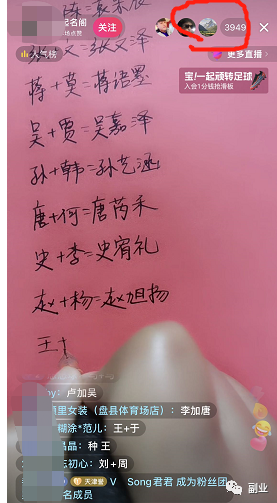 起名阁
关注
3949
场点赞
人气榜
更多直播
宝/一起顽转足球
入会1分钱抢滑板
蒋+莫=蒋语墨
吴+贾=吴嘉泽
孙+韩=孙艺涵
唐+何=唐芮禾
史+李=史宥礼
赵+杨=赵旭扬
王+
卢加吴
里女装（盘县体育场店）：李加唐
糊涂*范儿：王+于
晶：种 王
初心：刘+周
天津爱 V Song君君 成为粉丝团
名成员
副业